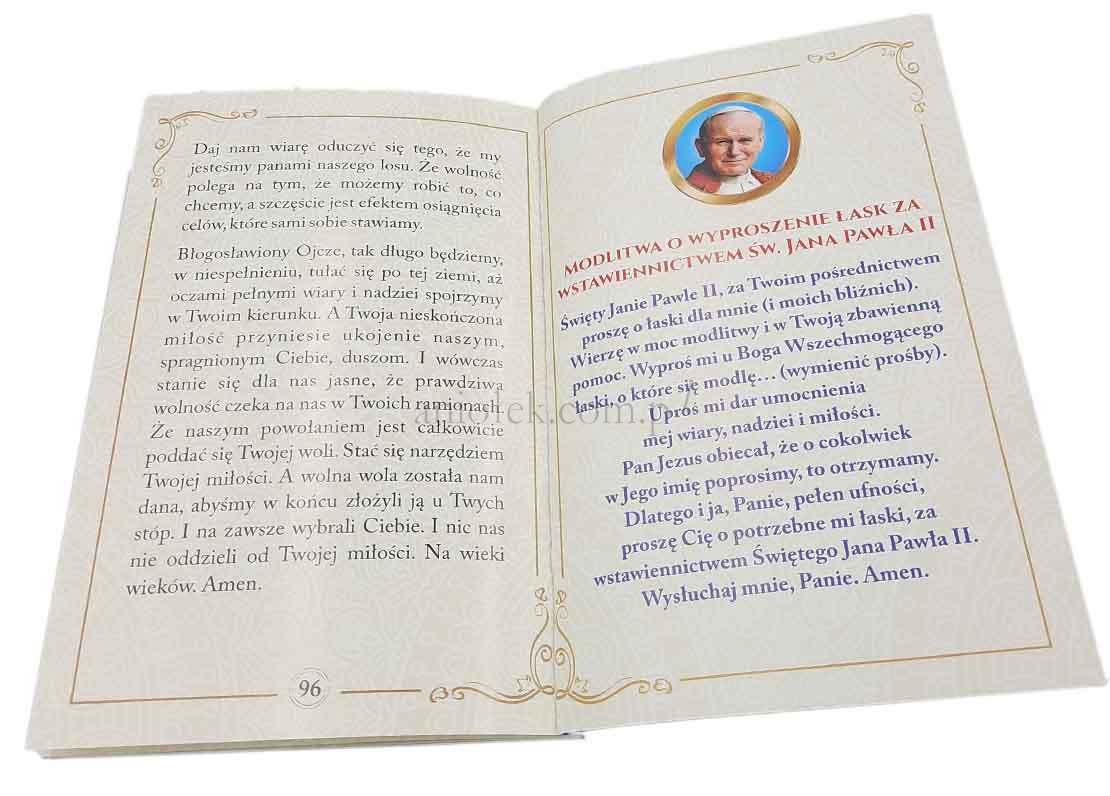 Daj nam wiarę oduczyć się tego, że my
jesteśmy panami naszego losu. Że wolność
polega na tym, że możemy robić to, co
chcemy, a szczęście jest efektem osiągnięcia
celów, które sami sobie stawiamy.
Błogosławiony Ojcze, tak długo będziemy,
w niespełnieniu, tułać się po tej ziemi, aż
oczami pełnymi wiary i nadziei spojrzymy
w Twoim kierunku. A Twoja nieskończona
miłość przyniesie ukojenie naszym,
spragnionym Ciebie, duszom. I wówczas
stanie się dla nas jasne, że prawdziwa
wolność czeka na nas w Twoich ramionach.
Że naszym powołaniem jest całkowicie
poddać się Twojej woli. Stać się narzędziem
Twojej miłości. A wolna wola została nam
dana, abyśmy w końcu złożyli ją u Twych
stóp. I na zawsze wybrali Ciebie. I nic nas
nie oddzieli od Twojej miłości. Na wieki
wieków. Amen.
96
MODLITWA O WYPROSZENIE ŁASK ZA
WSTAWIENNICTWEM ŚW. JANA PAWŁA II
Święty Janie Pawle II, za Twoim pośrednictwem
proszę o łaski dla mnie (i moich bliźnich).
Wierzę w moc modlitwy i w Twoją zbawienną
pomoc. Wyproś mi u Boga Wszechmogącego
łaski, o które się modlę... (wymienić prośby).
Uproś mi dar umocnienia
mej wiary, nadziei i miłości.
Pan Jezus obiecał, że o cokolwiek
w Jego imię poprosimy, to otrzymamy.
Dlatego i ja, Panie, pełen ufności,
proszę Cię o potrzebne mi łaski, za
wstawiennictwem Świętego Jana Pawła II.
Wysłuchaj mnie, Panie. Amen.
aniolek.com.pl